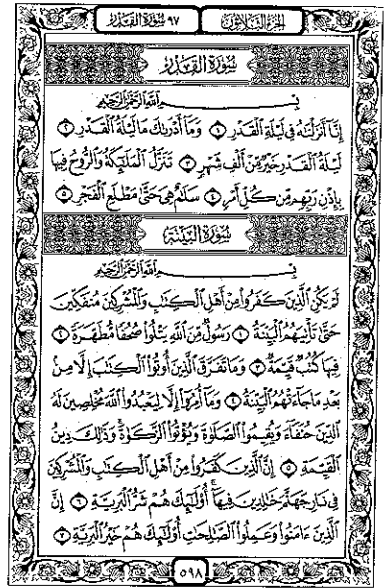 الجزء الثلاثون ٩٧ سورة القدر
سورة القدر
بسم الله الرحمن الرحيم
إِنَّا أَنزَلْنَٰهُ فِى لَيْلَةِ ٱلْقَدْرِ ١ وَمَآ أَدْرَىٰكَ مَا لَيْلَةُ ٱلْقَدْرِ ٢
لَيْلَةُ ٱلْقَدْرِ خَيْرٌ مِّنْ أَلْفِ شَهْرٍ ٣ تَنَزَّلُ ٱلْمَلَٰٓئِكَةُ وَٱلرُّوحُ فِيهَا
بِإِذْنِ رَبِّهِم مِّن كُلِّ أَمْرٍ ٤ سَلَٰمٌ هِىَ حَتَّىٰ مَطْلَعِ ٱلْفَجْرِ ٥
سورة البينة
بسم الله الرحمن الرحيم
لَمْ يَكُنِ ٱلَّذِينَ كَفَرُوا۟ مِنْ أَهْلِ ٱلْكِتَٰبِ وَٱلْمُشْرِكِينَ مُنفَكِّينَ
حَتَّىٰ تَأْتِيَهُمُ ٱلْبَيِّنَةُ ١ رَسُولٌ مِّنَ ٱللَّهِ يَتْلُوا۟ صُحُفًا مُّطَهَّرَةً ٢
فِيهَا كُتُبٌ قَيِّمَةٌ ٣ وَمَا تَفَرَّقَ ٱلَّذِينَ أُوتُوا۟ ٱلْكِتَٰبَ إِلَّا مِنۢ
بَعْدِ مَا جَآءَتْهُمُ ٱلْبَيِّنَةُ ٤ وَمَآ أُمِرُوٓا۟ إِلَّا لِيَعْبُدُوا۟ ٱللَّهَ مُخْلِصِينَ لَهُ
ٱلدِّينَ حُنَفَآءَ وَيُقِيمُوا۟ ٱلصَّلَوٰةَ وَيُؤْتُوا۟ ٱلزَّكَوٰةَ وَذَٰلِكَ دِينُ
ٱلْقَيِّمَةِ ٥ إِنَّ ٱلَّذِينَ كَفَرُوا۟ مِنْ أَهْلِ ٱلْكِتَٰبِ وَٱلْمُشْرِكِينَ
فِى نَارِ جَهَنَّمَ خَٰلِدِينَ فِيهَآ أُو۟لَٰٓئِكَ هُمْ شَرُّ ٱلْبَرِيَّةِ ٦ إِنَّ
ٱلَّذِينَ ءَامَنُوا۟ وَعَمِلُوا۟ ٱلصَّٰلِحَٰتِ أُو۟لَٰٓئِكَ هُمْ خَيْرُ ٱلْبَرِيَّةِ ٧
٥٩٨